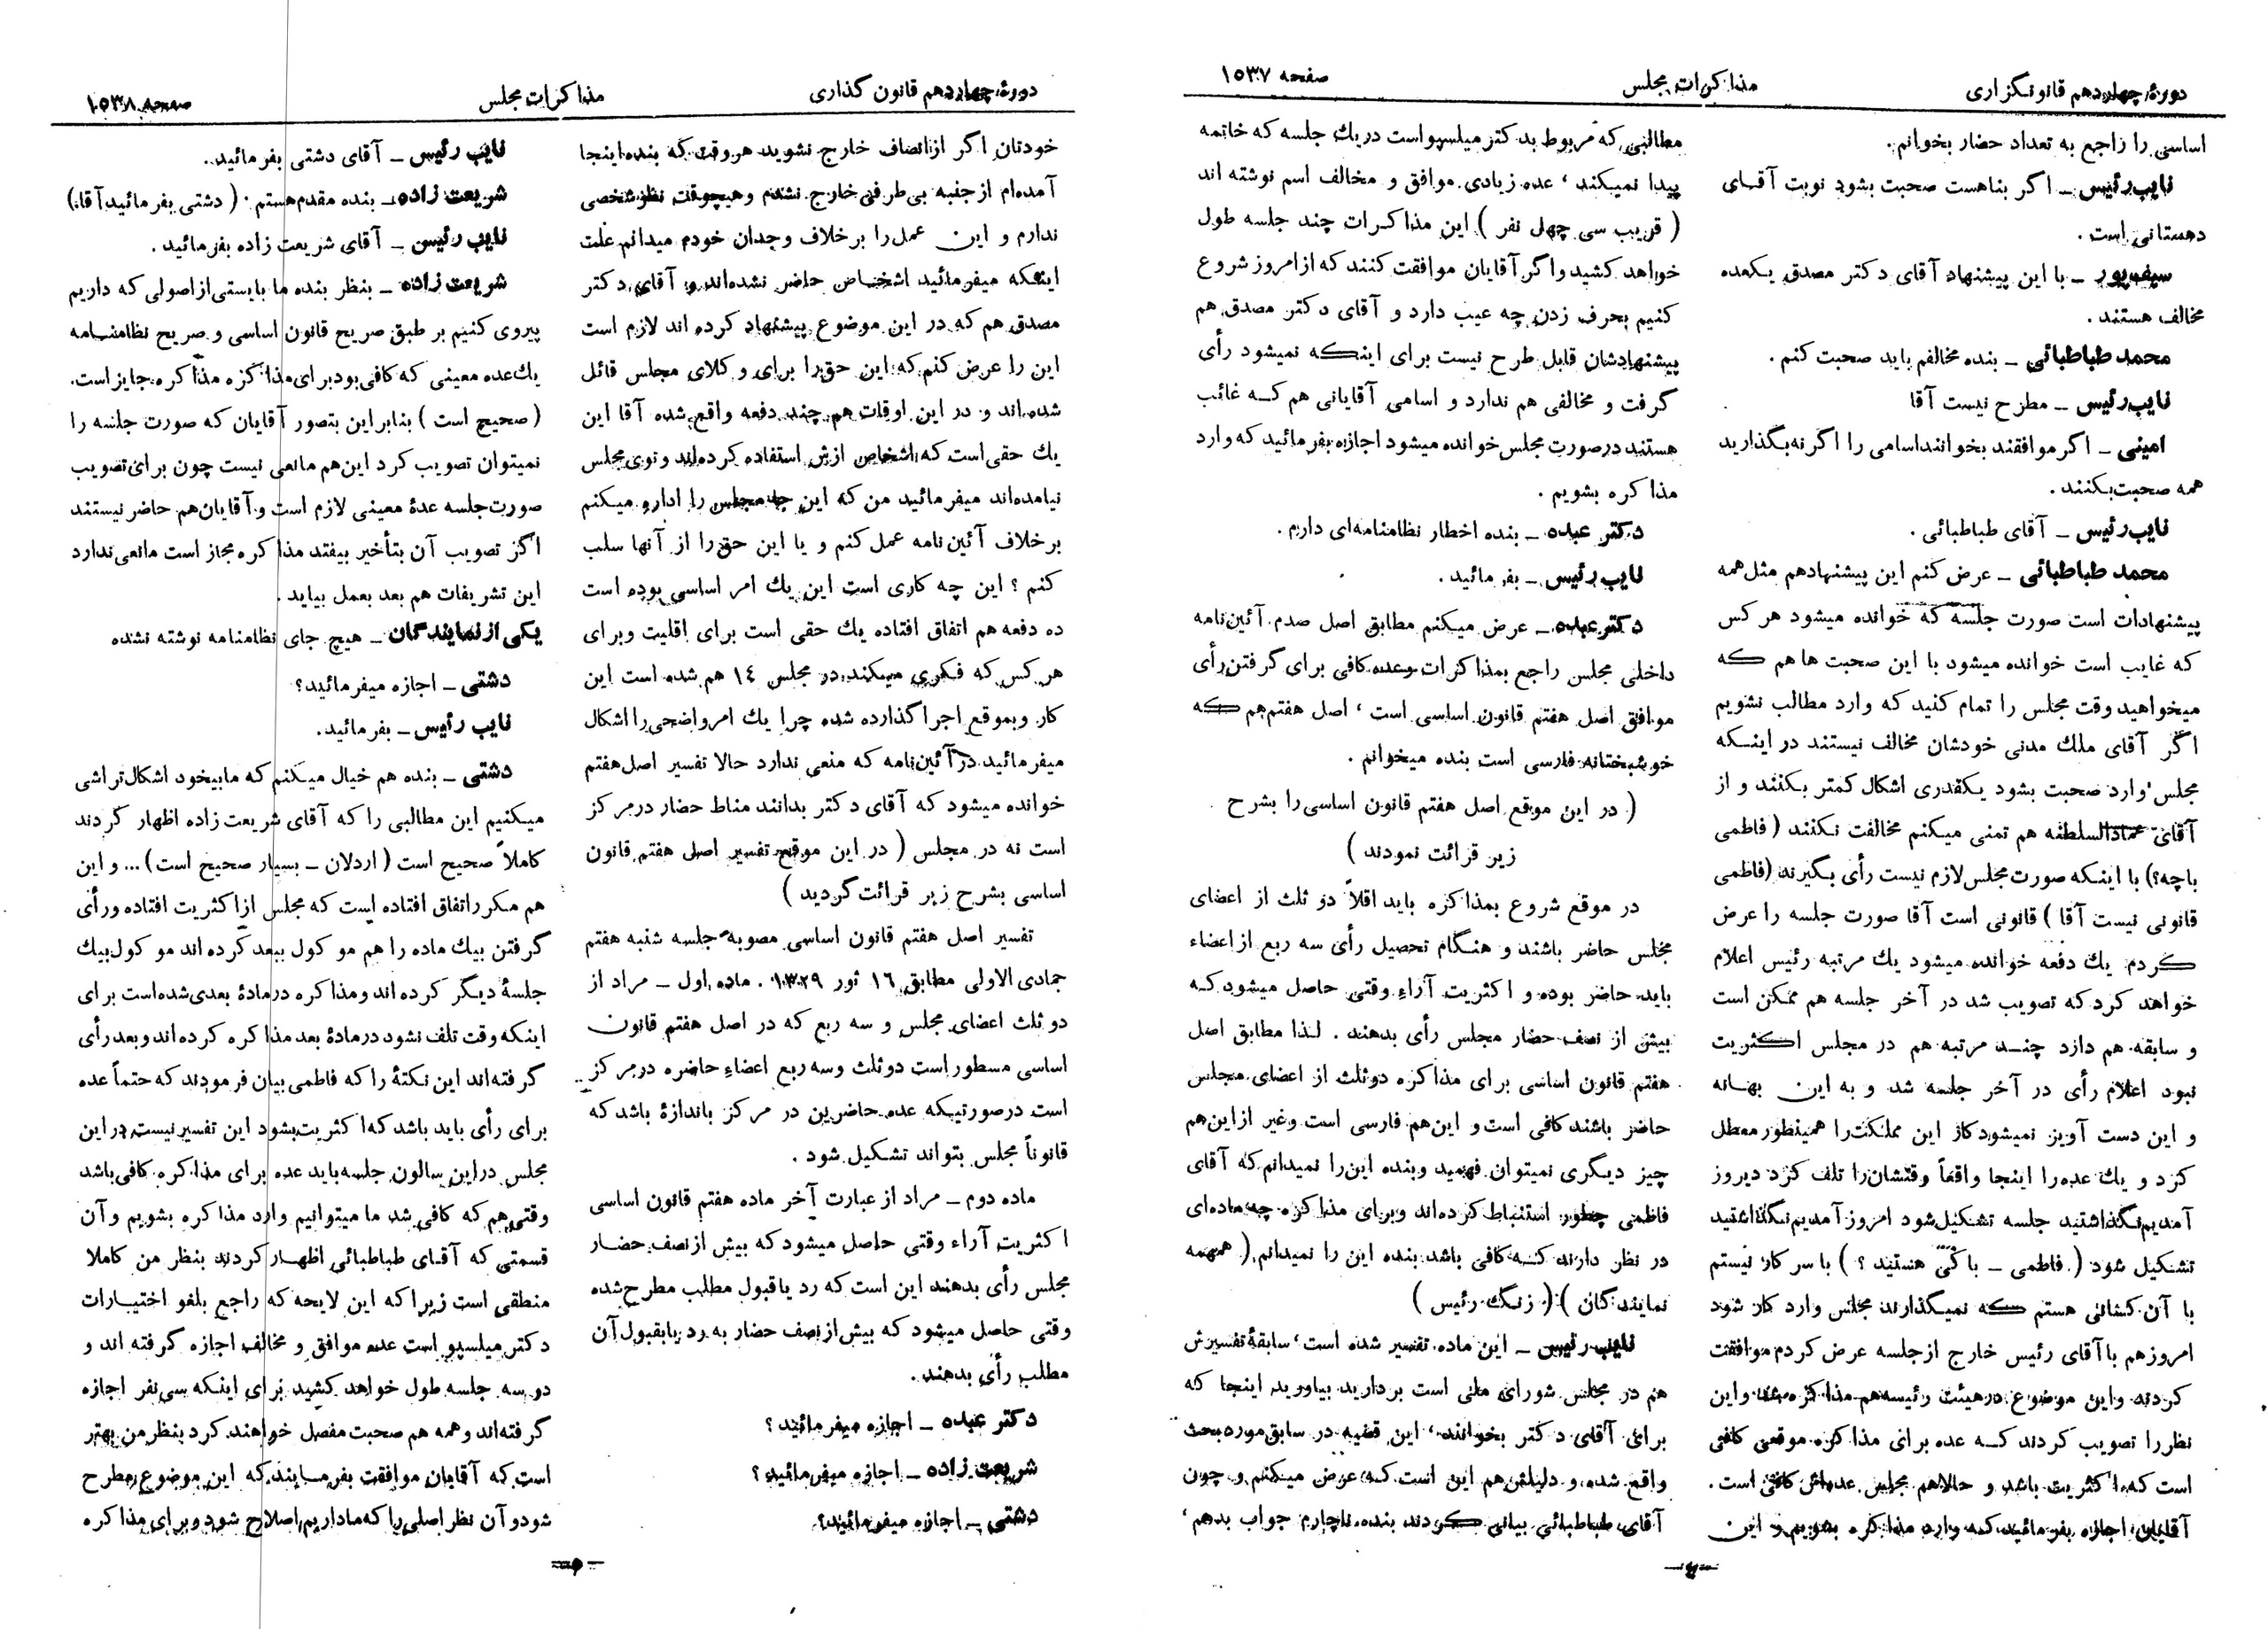 دورهٔ چهاردهم قانونگزاری
مذاکرات مجلس
صفحه ۱۵۳۷
اساسی را راجع به تعداد حضار بخوانم.
نایب رئیس ــ اگر بناهست صحبت بشود نوبت آقای
دهستانی است .
سیف‌پور ــ با این پیشنهاد آقای دکتر مصدق یکعده
مخالف هستند .
محمد طباطبائی ــ بنده مخالفم باید صحبت کنم .
نایب رئیس ــ مطرح نیست آقا
امینی ــ اگر موافقند بخوانند اسامی را اگر نه بگذارید
همه صحبت بکنند .
نایب رئیس ــ آقای طباطبائی .
محمد طباطبائی ــ عرض کنم این پیشنهادهم مثل همه
پیشنهادات است صورت جلسه که خوانده میشود هر کس
که غایب است خوانده میشود با این صحبت ها هم که
میخواهید وقت مجلس را تمام کنید که وارد مطالب نشویم
اگر آقای ملك مدنی خودشان مخالف نیستند در اینکه
مجلس وارد صحبت بشود یکقدری اشکال کمتر بکنند و از
آقای عمادالسلطنه هم تمنی میکنم مخالفت نکنند (فاطمی
باچه؟) با اینکه صورت مجلس لازم نیست رأی بگیرند (فاطمی
قانونی نیست آقا ) قانونی است آقا صورت جلسه را عرض
کردم یك دفعه خوانده میشود یك مرتبه رئیس اعلام
خواهد کرد که تصویب شد در آخر جلسه هم ممکن است
و سابقه هم دارد چند مرتبه هم در مجلس اکثریت
نبود اعلام رأی در آخر جلسه شد و به این بهانه
و این دست آویز نمیشود کار این مملکت را همینطور معطل
کرد و یك عده را اینجا واقعاً وقتشان را تلف کرد دیروز
آمدیم نگذاشتید جلسه تشکیل شود امروز آمدیم نگذاشتید
تشکیل شود ( فاطمی ــ با کی هستید ؟ ) با سر کار نیستم
با آن کسانی هستم که نمیگذارند مجلس وارد کار شود
امروزهم با آقای رئیس خارج از جلسه عرض کردم موافقت
کردند و این موضوع در هیئت رئیسه هم مذاکره شد و این
نظر را تصویب کردند که عده برای مذاکره موقعی کافی
است که اکثریت باشد و حالاهم مجلس عده‌اش کافی است .
آقایان اجازه بفرمائید که وارد مذاکره بشویم و این
مطالبی که مربوط بدکتر میلسپو است در یك جلسه که خاتمه
پیدا نمیکند ، عده زیادی موافق و مخالف اسم نوشته اند
( قریب سی چهل نفر ) این مذاکرات چند جلسه طول
خواهد کشید و اگر آقایان موافقت کنند که از امروز شروع
کنیم بحرف زدن چه عیب دارد و آقای دکتر مصدق هم
پیشنهادشان قابل طرح نیست برای اینکه نمیشود رأی
گرفت و مخالفی هم ندارد و اسامی آقایانی هم که غائب
هستند درصورت مجلس خوانده میشود اجازه بفرمائید که وارد
مذاکره بشویم .
دکتر عبده ــ بنده اخطار نظامنامه‌ای دارم .
نایب رئیس ــ بفرمائید .
دکتر عبده ــ عرض میکنم مطابق اصل صدم آئین‌نامه
داخلی مجلس راجع بمذاکرات وعده کافی برای گرفتن رأی
موافق اصل هفتم قانون اساسی است ، اصل هفتم هم که
خوشبختانه فارسی است بنده میخوانم .
( در این موقع اصل هفتم قانون اساسی را بشرح
زیر قرائت نمودند )
در موقع شروع بمذاکره باید اقلاً دو ثلث از اعضای
مجلس حاضر باشند و هنگام تحصیل رأی سه ربع از اعضاء
باید حاضر بوده و اکثریت آراء وقتی حاصل میشود که
بیش از نصف حضار مجلس رأی بدهند . لذا مطابق اصل
هفتم قانون اساسی برای مذاکره دوثلث از اعضای مجلس
حاضر باشند کافی است و این هم فارسی است و غیر از این هم
چیز دیگری نمیتوان فهمید و بنده این را نمیدانم که آقای
فاطمی چطور استنباط کرده‌اند و برای مذاکره چه ماده‌ای
در نظر دارند که کافی باشد بنده این را نمیدانم ( همهمه
نمایندگان ) ( زنگ رئیس )
نایب رئیس ــ این ماده تفسیر شده است ، سابقهٔ تفسیرش
هم در مجلس شورای ملی است بردارید بیاورید اینجا که
برای آقای دکتر بخوانند ، این قضیه در سابق مورد بحث
واقع شده و دلیلش هم این است که عرض میکنم و چون
آقای طباطبائی بیانی کردند بنده ناچارم جواب بدهم ،
ــ ٤ ــ
دورهٔ چهاردهم قانون گذاری
مذاکرات مجلس
صفحه ۱۵۳۸
خودتان اگر از انصاف خارج نشوید هر وقت که بنده اینجا
آمده‌ام از جنبه بی‌طرفی خارج نشدم و هیچوقت نظر شخصی
ندارم و این عمل را بر خلاف وجدان خودم میدانم علت
اینکه میفرمائید اشخاص حاضر نشده‌اند و آقای دکتر
مصدق هم که در این موضوع پیشنهاد کرده اند لازم است
این را عرض کنم که این حق را برای وکلای مجلس قائل
شده‌اند و در این اوقات هم چند دفعه واقع شده آقا این
یك حقی است که اشخاص ازش استفاده کرده‌اند و توی مجلس
نیامده‌اند میفرمائید من که این جا مجلس را اداره میکنم
بر خلاف آئین نامه عمل کنم و یا این حق را از آنها سلب
کنم ؟ این چه کاری است این یك امر اساسی بوده است
ده دفعه هم اتفاق افتاده یك حقی است برای اقلیت و برای
هر کس که فکری میکند در مجلس ۱٤ هم شده است این
کار و بموقع اجرا گذارده شده چرا یك امر واضحی را اشکال
میفرمائید در آئین‌نامه که منعی ندارد حالا تفسیر اصل هفتم
خوانده میشود که آقای دکتر بدانند مناط حضار در مرکز
است نه در مجلس ( در این موقع تفسیر اصل هفتم قانون
اساسی بشرح زیر قرائت گردید )
تفسیر اصل هفتم قانون اساسی مصوبه جلسه شنبه هفتم
جمادی الاولی مطابق ۱٦ ثور ۱۳۲۹ . ماده اول ــ مراد از
دو ثلث اعضای مجلس و سه ربع که در اصل هفتم قانون
اساسی مسطور است دو ثلث و سه ربع اعضاء حاضره در مرکز
است درصورتیکه عده حاضرین در مرکز باندازهٔ باشد که
قانوناً مجلس بتواند تشکیل شود .
ماده دوم ــ مراد از عبارت آخر ماده هفتم قانون اساسی
اکثریت آراء وقتی حاصل میشود که بیش از نصف حضار
مجلس رأی بدهند این است که رد یا قبول مطلب مطرح شده
وقتی حاصل میشود که بیش از نصف حضار به رد یا بقبول آن
مطلب رأی بدهند .
دکتر عبده ــ اجازه میفرمائید ؟
شریعت زاده ــ اجازه میفرمائید ؟
دشتی ــ اجازه میفرمائید؟
نایب رئیس ــ آقای دشتی بفرمائید.
شریعت زاده ــ بنده مقدم هستم . ( دشتی بفرمائید آقا )
نایب رئیس ــ آقای شریعت زاده بفرمائید .
شریعت زاده ــ بنظر بنده ما بایستی از اصولی که داریم
پیروی کنیم بر طبق صریح قانون اساسی و صریح نظامنامه
یك عده معینی که کافی بود برای مذاکره مذاکره جایز است.
( صحیح است ) بنابر این بتصور آقایان که صورت جلسه را
نمیتوان تصویب کرد این هم مانعی نیست چون برای تصویب
صورت جلسه عدهٔ معینی لازم است و آقایان هم حاضر نیستند
اگر تصویب آن بتأخیر بیفتد مذاکره مجاز است مانعی ندارد
این تشریفات هم بعد بعمل بیاید .
یکی از نمایندگان ــ هیچ جای نظامنامه نوشته نشده
دشتی ــ اجازه میفرمائید؟
نایب رئیس ــ بفرمائید.
دشتی ــ بنده هم خیال میکنم که مابیخود اشکال تراشی
میکنیم این مطالبی را که آقای شریعت زاده اظهار کردند
کاملاً صحیح است ( اردلان ــ بسیار صحیح است) ... و این
هم مکرر اتفاق افتاده است که مجلس از اکثریت افتاده و رأی
گرفتن بیك ماده را هم موکول ببعد کرده اند موکول بیك
جلسهٔ دیگر کرده اند و مذاکره در مادهٔ بعدی شده است برای
اینکه وقت تلف نشود در مادهٔ بعد مذاکره کرده‌اند و بعد رأی
گرفته‌اند این نکتهٔ را که فاطمی بیان فرمودند که حتماً عده
برای رأی باید باشد که اکثریت بشود این تفسیر نیست در این
مجلس در این سالون جلسه باید عده برای مذاکره کافی باشد
وقتی هم که کافی شد ما میتوانیم وارد مذاکره بشویم و آن
قسمتی که آقای طباطبائی اظهار کردند بنظر من کاملا
منطقی است زیرا که این لایحه که راجع بلغو اختیارات
دکتر میلسپو است عده موافق و مخالف اجازه گرفته اند و
دو سه جلسه طول خواهد کشید برای اینکه سی نفر اجازه
گرفته‌اند و همه هم صحبت مفصل خواهند کرد بنظر من بهتر
است که آقایان موافقت بفرمایند که این موضوع مطرح
شود و آن نظر اصلی را که ماداریم اصلاح شود و برای مذاکره
ــ ٥ ــ